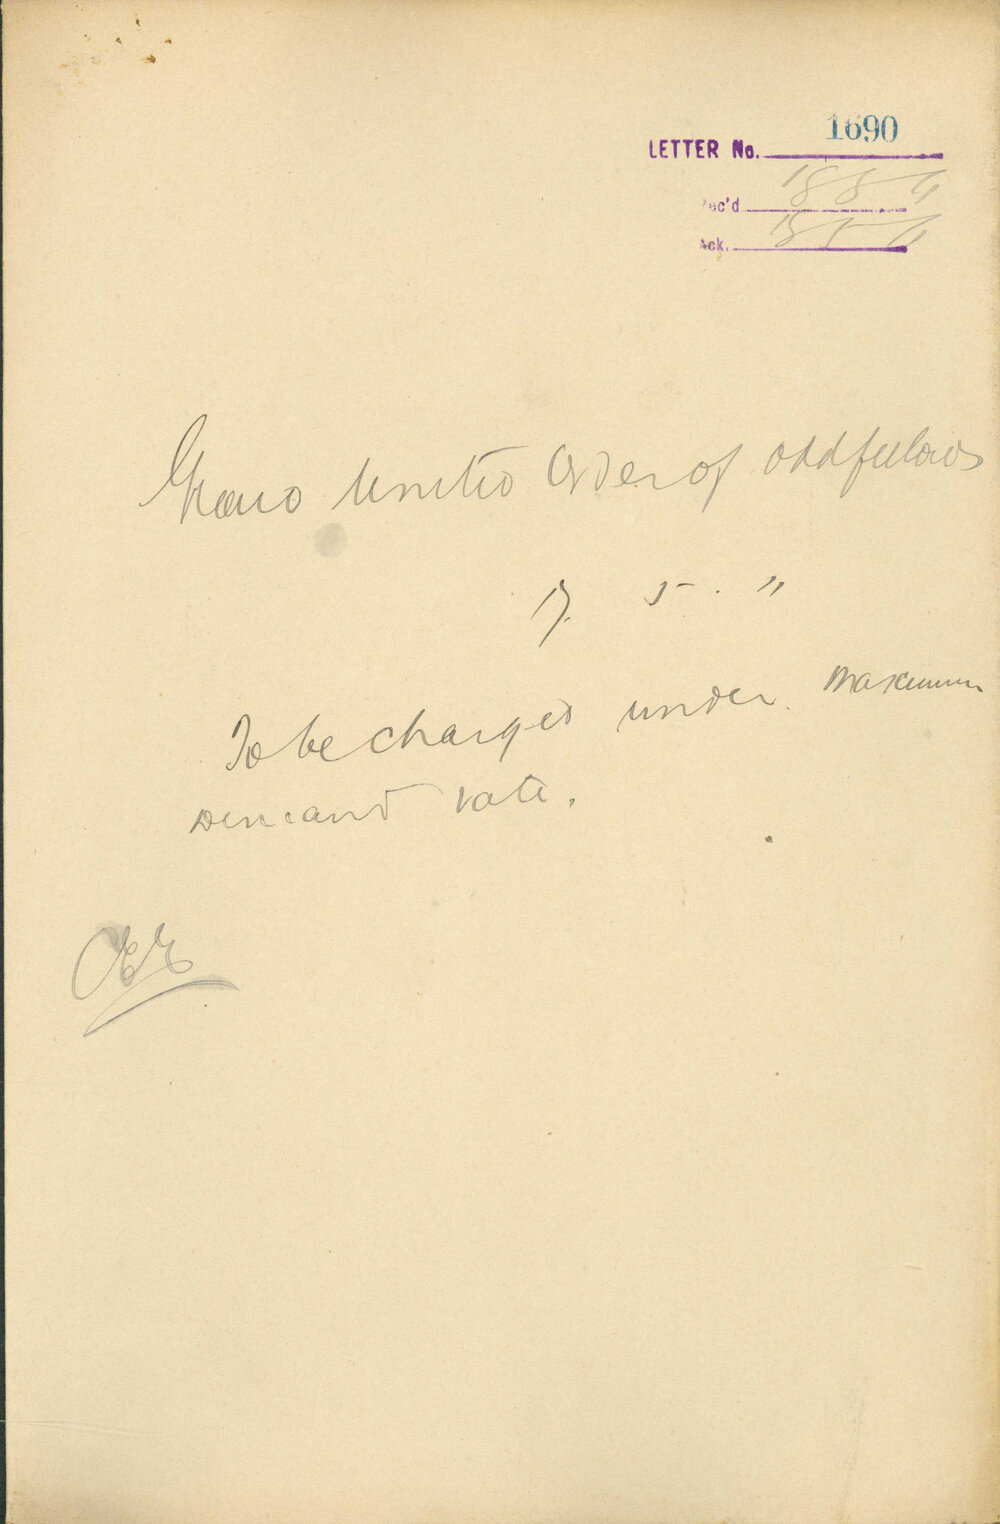 LETTER No. 1690
Rec'd 18 5 11
Ack. 18 5 11
Grand United Order of Oddfellows
17. 5. 11
To be charged under maximum
demand rate.